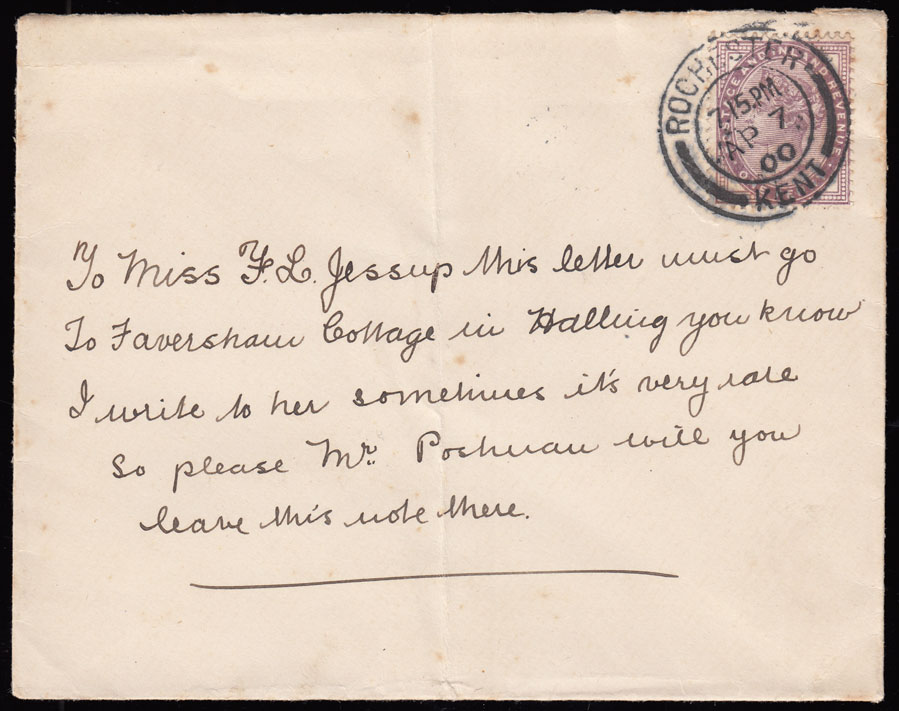 ROCHESTER
7.15.PM
AP 7
00
KENT
POSTAGE AND INLAND REVENUE
To Miss F. L. Jessup this letter must go
To Faversham Cottage in Halling you know
I write to her sometimes it's very rare
So please Mr. Postman will you
leave this note there.